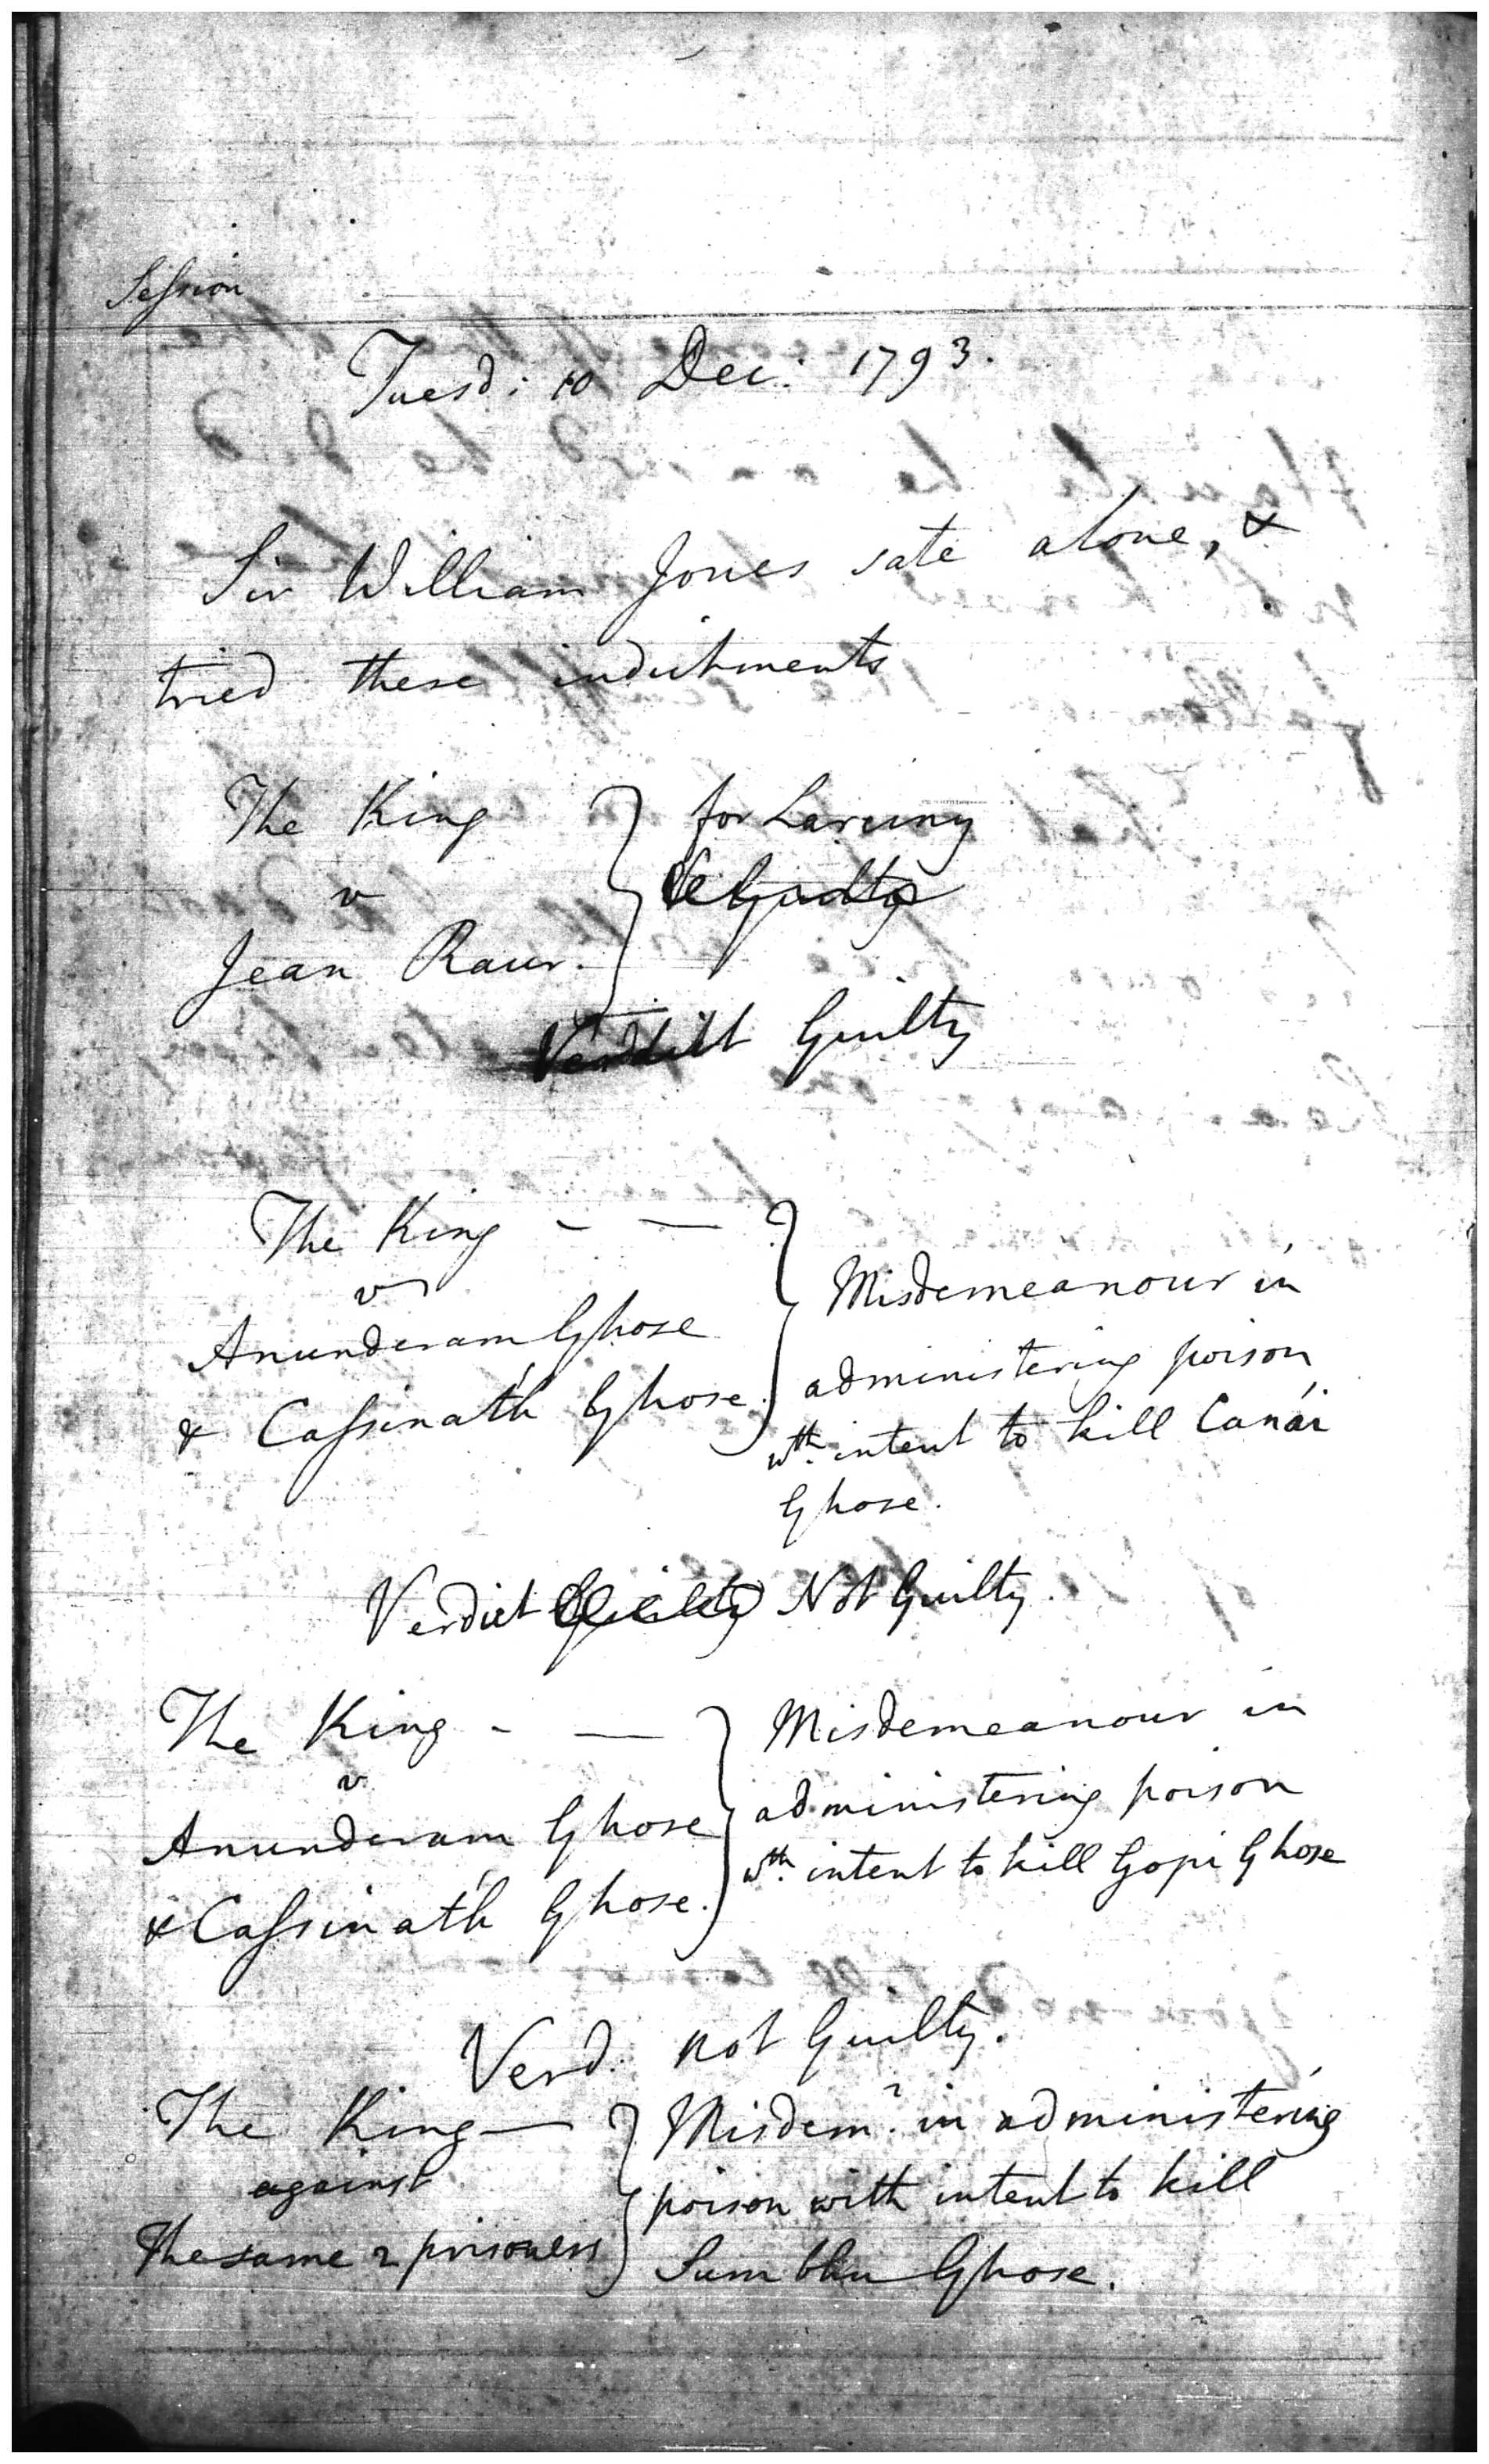 Session
Tuesd: 10 Dec: 1793.
Sir William Jones sate alone, &
tried these indictments
The King } for Larceny
v
Jean Raur.
Verdict Guilty
The King - —
vs
Anunderam Ghose
& Cassináth Ghose.
Misdemeanour in
administering poison
wth. intent to kill Canái
Ghose.
Verdict Guilty Not Guilty.
The King - —
v.
Anunderam Ghose
& Cassináth Ghose.
Misdemeanour in
administering poison
wth. intent to kill Gopi Ghose
Verd. not Guilty.
The King —
against
The same 2 prisoners
Misdemr. in administering
poison with intent to kill
Sumbhu Ghose.